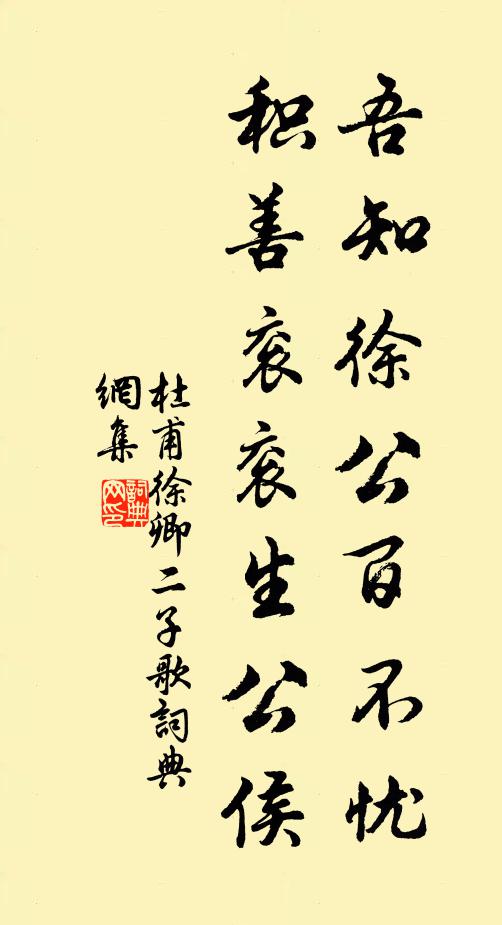 吾知徐公百不忧
积善衮衮生公侯
杜甫徐卿二子歌詞典
網集
詞典
网印